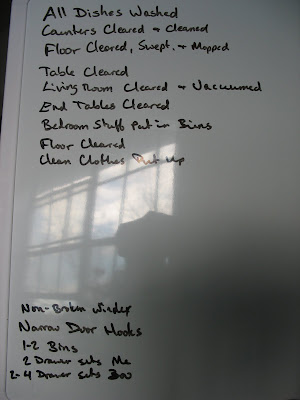 All Dishes Washed
Counters Cleared + Cleaned
Floor Cleared, Swept, + Mopped
Table Cleared
Living Room Cleared + Vacuumed
End Tables Cleared
Bedroom Stuff Put in Bins
Floor Cleared
Clean Clothes Put Up
Non-Broken Windex
Narrow Door Hooks
1-2 Bins
2 Drawer sets Me
2-4 Drawer sets